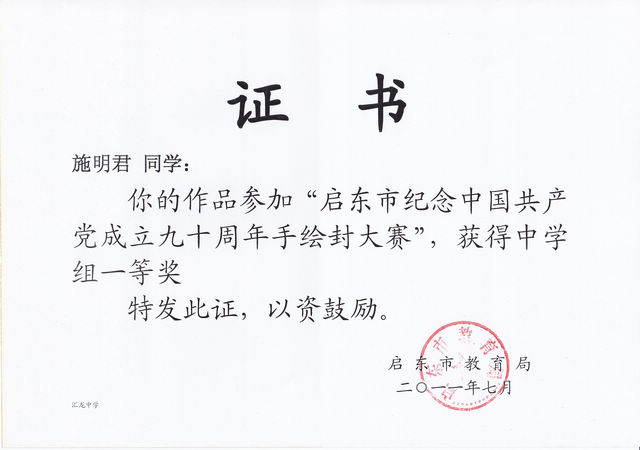 证 书
施明君 同学：
你的作品参加“启东市纪念中国共产
党成立九十周年手绘封大赛”，获得中学
组一等奖
特发此证，以资鼓励。
启东市教育局
二〇一一年七月
启东市教育局
汇龙中学